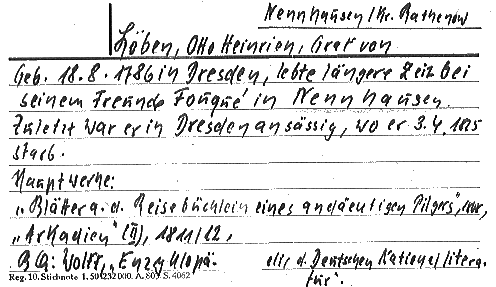 Nennhausen/Kr. Rathenow
Löben, Otto Heinrich, Graf von
Geb. 18.8.1786 in Dresden, lebte längere Zeit bei
seinem Freunde Fouqué in Nennhausen.
Zuletzt war er in Dresden ansässig, wo er 3.4.1825
starb.
Hauptwerke:
„Blätter a. d. Reisebüchlein eines andächtigen Pilgers",
„Arkadien" (II), 1811/12,
BQ: Wolff, „Enzyklopä-
die d. Deutschen National litera-
tur".
Reg. 10. Stichnote 1. 50 232000. A. 803 S. 4062